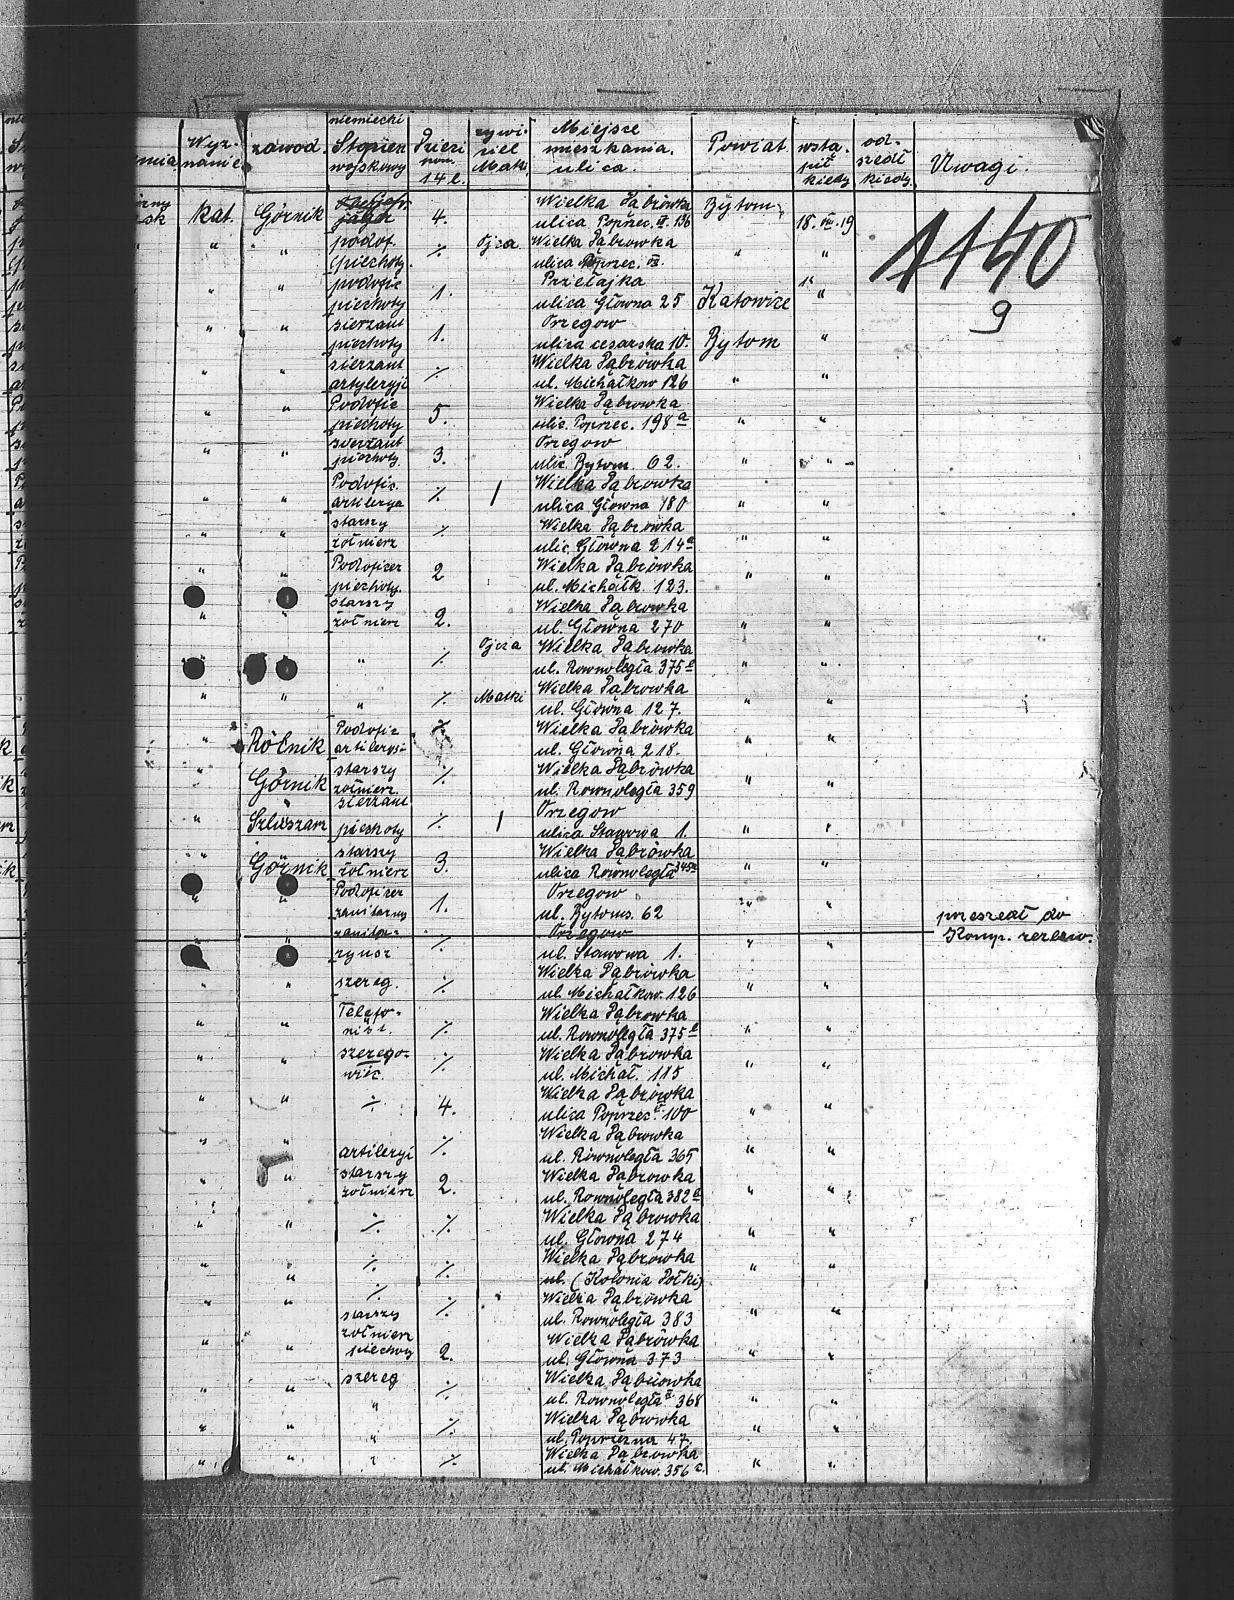 Wyz- zawod. niemiecki Stopien wojskowy Dzieci 14 l. zywi- ciel Matki Miejsce mieszkania. ulica. Powiat. wsta- pił kiedy od- szedł kiedy. Uwagi.
kat. Górnik 4. Wielka Dąbrówka Bytom.
ulica Poprzec. 136 18. VIII. 19 1140
" " podof. piechoty. ·/· Ojca Wielka Dąbrowka " "
ulica Poprzec.
" " podofic piechoty 1. Przełajka
ulica Główna 25 Katowice " 9
" " sierzant piechoty 1. Orzegow
ulica cesarska 10. Bytom "
" " sierzant artyleryji ·/· Wielka Dąbrówka
ul. Michałkow 126 " "
" " Podofic piechoty 5. Wielka Dąbrowka
ulic. Poprzec. 198 a " "
" " sierzant piechoty 3. Orzegow
ulic. Bytom. 62. " "
" " Podofic. artilerya ·/· / Wielka Dąbrowka
ulica Głowna 180 " "
" " starszy żołnierz ·/· Wielka Dąbrówka
ulic. Główna 214 a " "
" " Podoficer piechoty. 2 Wielka Dąbrówka
ul. Michałk. 123. " "
" " starszy żołnierz 2. Wielka Dąbrowka
ul. Główna 270 " "
" " " ·/· Ojca Wielka Dąbrowka
ul. Rownoległa 375 " "
" " " ·/· Matki Wielka Dąbrowka
ul. Główna 127. " "
" Rólnik Podofic artilerji ·/· Wielka Dąbrówka
ul. Głowna 218. " "
" Górnik starszy żołnierz ·/· Wielka Dąbrówka
ul. Rownoległa 359 " "
" sierzant piechoty ·/· / Orzegow
ulica Stawowa 1. " "
" Górnik starszy żołnierz 3. Wielka Dąbrówka
ulica Rownoległa " "
" " Podoficer sanitarny 1. Orzegow
ul. Bytoms. 62 " " przeszedł do
" " ·/· Orzegow Komp.
ul. Stawowa 1. " "
" " szereg. ·/· Wielka Dąbrówka
ul. Michałkow. 126 " "
" " Telefo- nist. ·/· Wielka Dąbrowka
ul. Rownoległa 375 " "
" " szerego- wiec. ·/· Wielka Dąbrowka
ul. Michał. 115 " "
" " ·/· 4. Wielka Dąbrówka
ulica Poprzec. 100 " "
" " artileryi ·/· Wielka Dąbrowka
ul. Równoległa 365 " "
" " starszy żołnierz 2. Wielka Dąbrowka
ul. Rownoległa 382 a " "
" " ·/· ·/· Wielka Dąbrowka
ul. Głowna 274 " "
" " ·/· ·/· Wielka Dąbrówka
ul. (Kolonia Połki) " "
" " ·/· ·/· Wielka Dąbrówka
ul. Rownoległa 383 " "
" " starszy żołnierz piechoty 2. Wielka Dąbrówka
ul. Główna 373 " "
" " szereg ·/· Wielka Dąbrówka
ul. Rownoległa 368 " "
" " " ·/· Wielka Dąbrowka
ul. Poprzeczna 47. " "
" " " ·/· Wielka Dąbrowka
ul. Michałkow. 356 c. " "